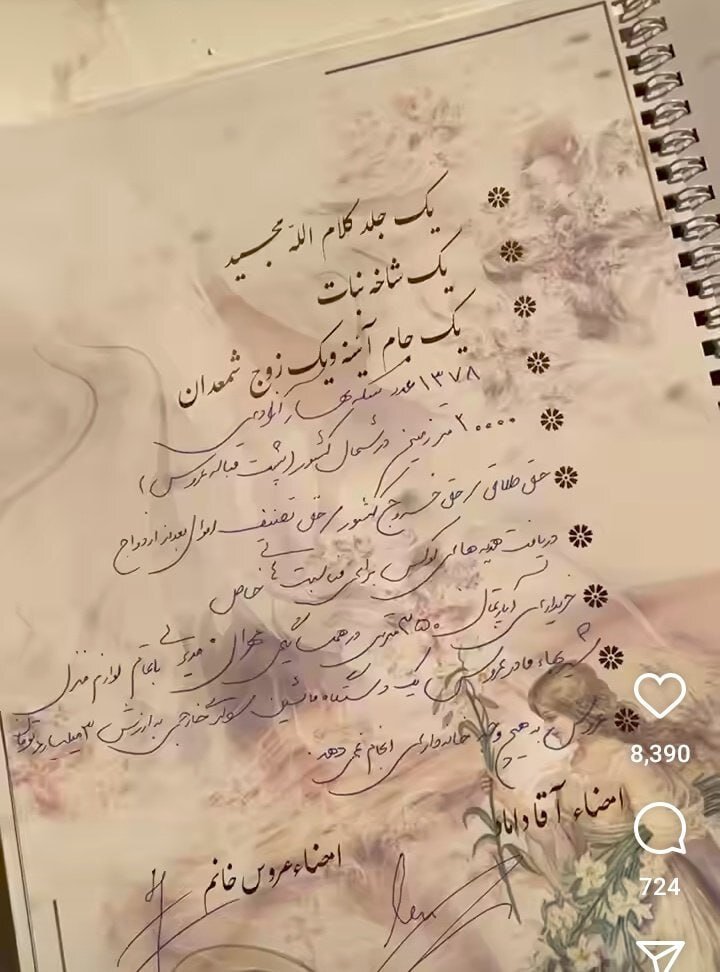 یک جلد کلام الله مجید
یک شاخه نبات
یک جام آئینه و یک زوج شمعدان
۱۳۷۸ عدد سکه بهار آزادی
۲۰۰۰۰ متر زمین در شمال کشور (پشت قباله عروس)
حق طلاق / حق خروج کشور / حق تصنیف اموال بعد از ازدواج
دریافت هدیه های لوکس برای مناسبت های خاص
خریداری آپارتمان ۳۵۰ متری در همسایگی با تمام لوازم منزل
شیربهاء مادر عروس یک دستگاه ماشین سواری خارجی به ارزش ۳ میلیارد تومان
عروس به هیچ وجه خانه داری انجام نمی دهد.
امضاء آقا داماد
امضاء عروس خانم
8,390
724